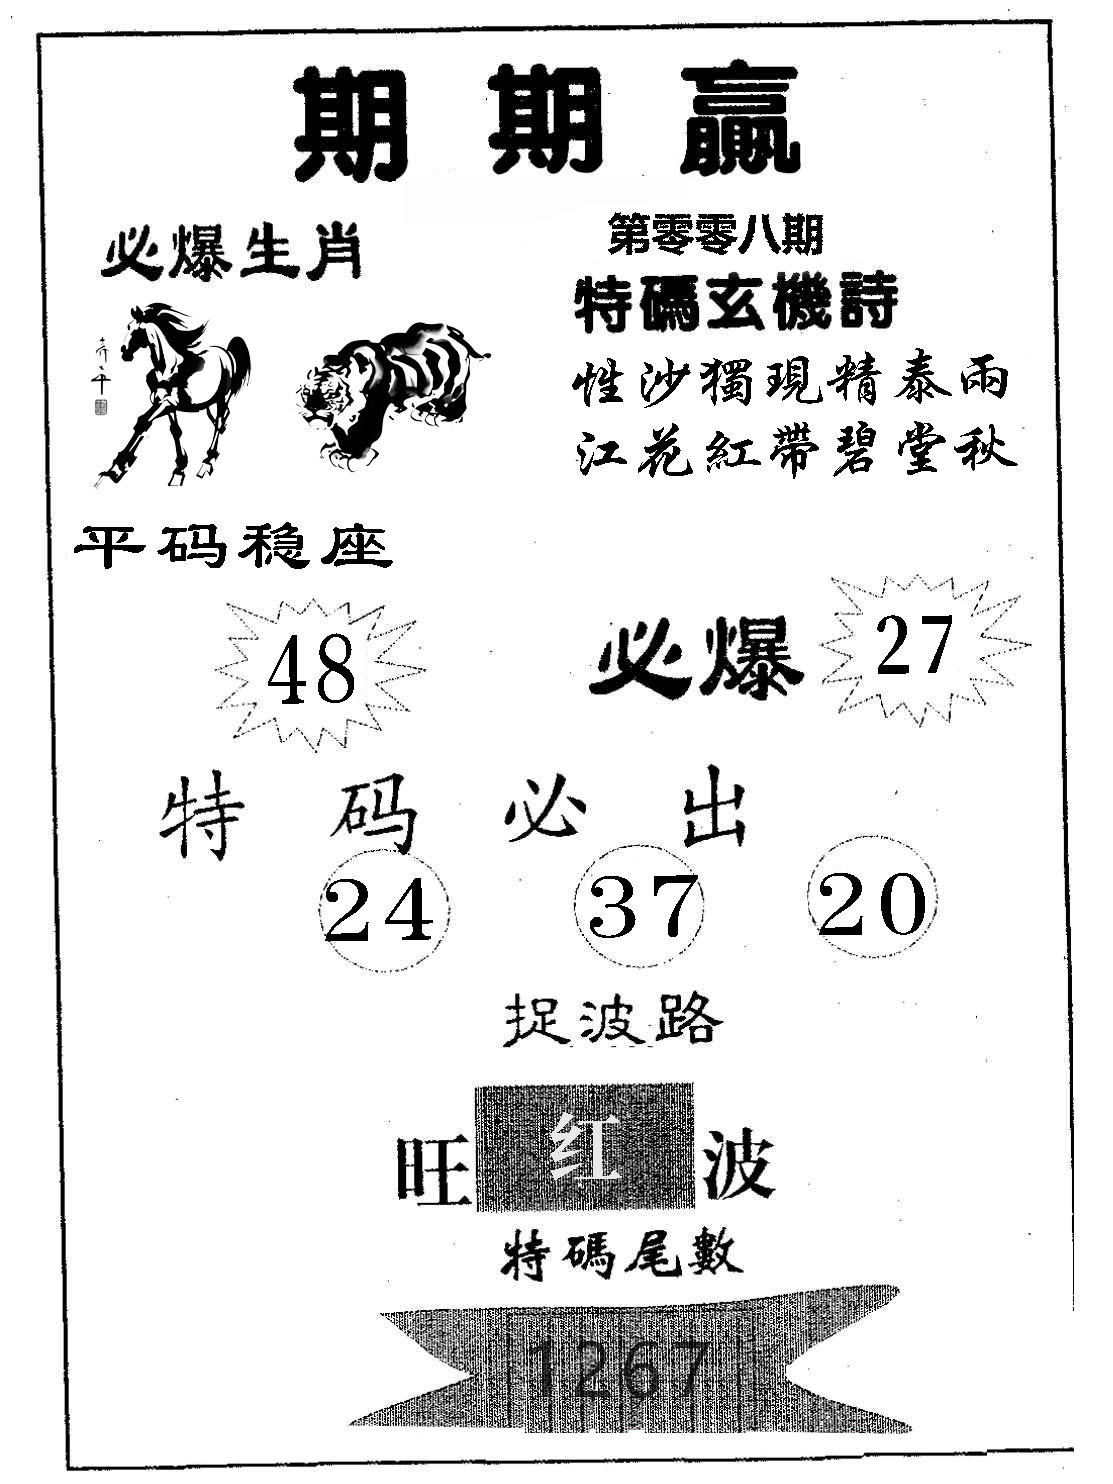 期期贏
必爆生肖
第零零八期
特碼玄機詩
性沙獨現精泰雨
江花紅帶碧堂秋
平码稳座
48
必爆
27
特码必出
24 37 20
捉波路
旺红波
特碼尾數
1267